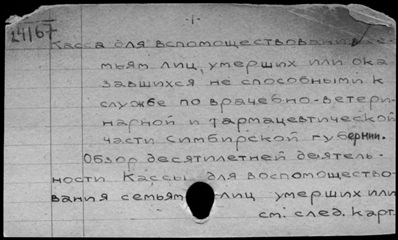 -1-
24/67
Касса для вспомоществования се-
мьям лиц, умерших или ока
завшихся не способными к
службе по врачебно-ветери-
нарной и фармацевтической
части Симбирской губернии.
Обзор десятилетней деятель-
ности Кассы для воспомощество-
вания семьям лиц умерших или
см. след. карт.